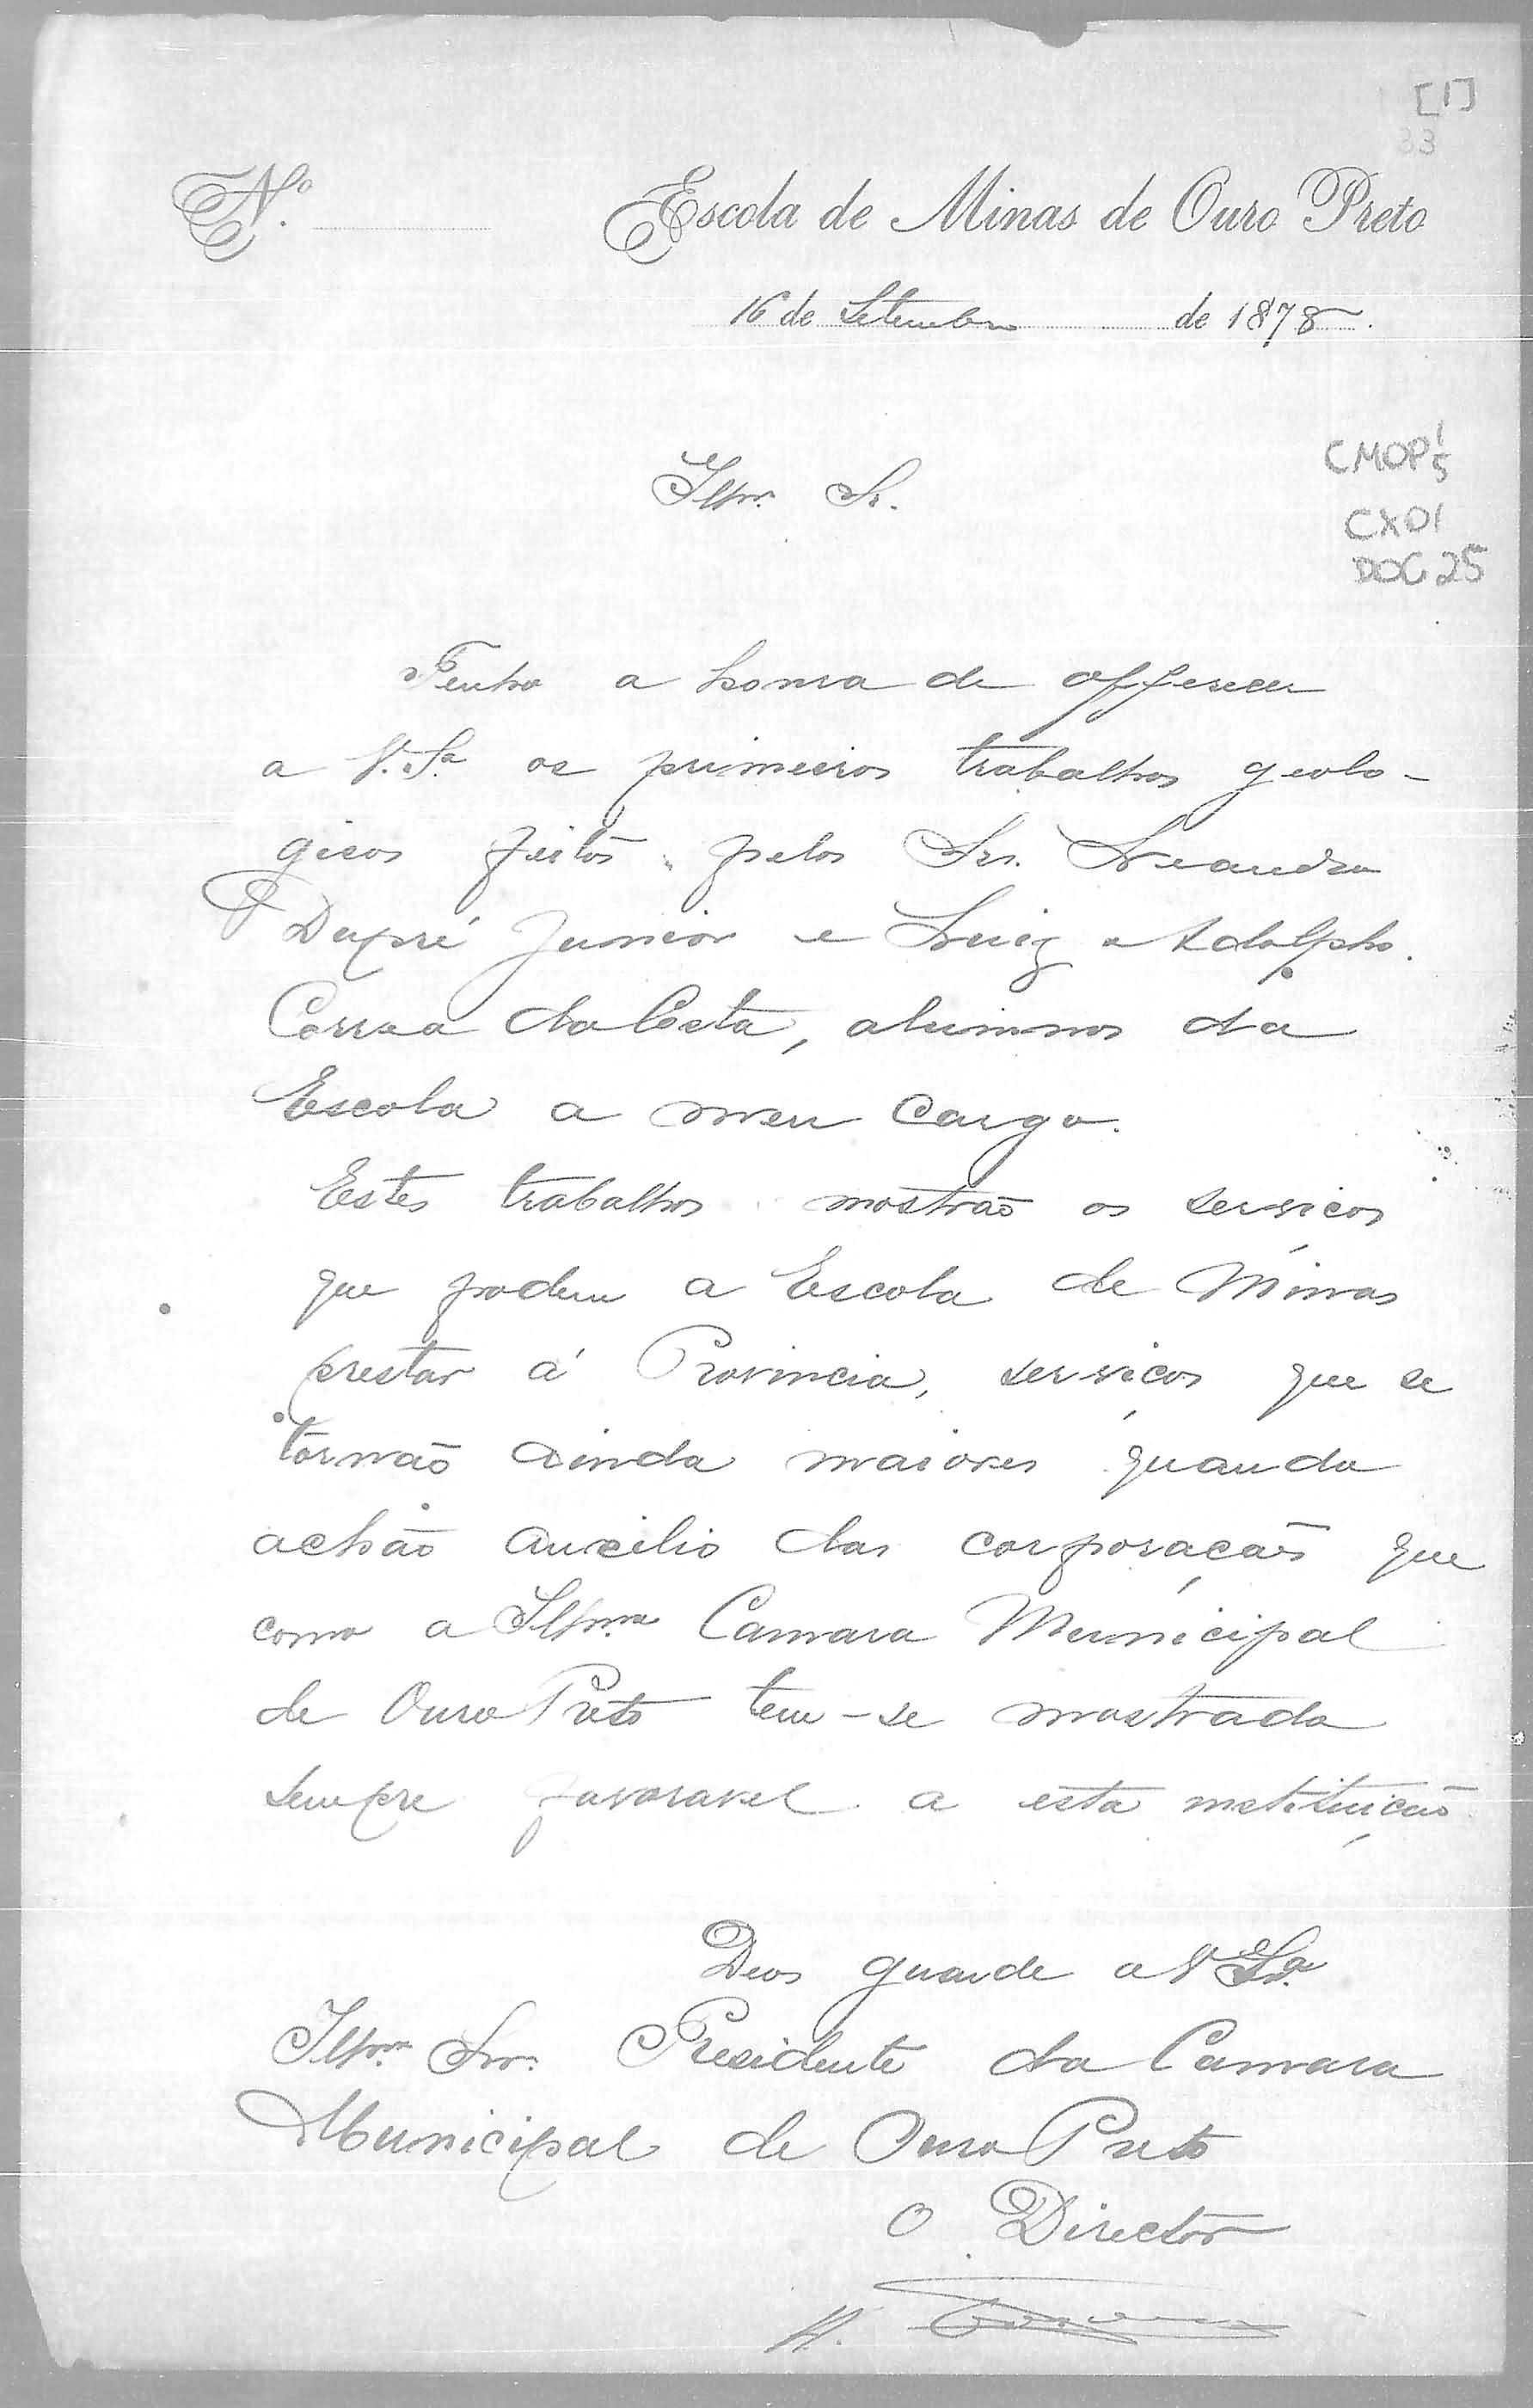 [1]
33
Nº. Escola de Minas de Ouro Preto
16 de Setembro de 1878.
CMOP 1/5
CX01
DOC 25
Illmo. Sr.
Tenho a honra de offerecer
a V. Sa. os primeiros trabalhos geolo-
gicos feitos pelos Srs. Leandro
Dupré Junior e Luiz Adolpho
Correa da Costa, alumnos da
Escola a meu cargo.
Estes trabalhos mostrão os serviços
que podem a Escola de Minas
prestar á Provincia, serviços que se
tornão ainda maiores quando
achão auxilio das corporações que
como a Illma. Camara Municipal
de Ouro Preto tem-se mostrado
sempre favoravel a esta instituição
Deos guarde a V Sa.
Illmo. Snr. Presidente da Camara
Municipal de Ouro Preto
O Director
H. Gorceix